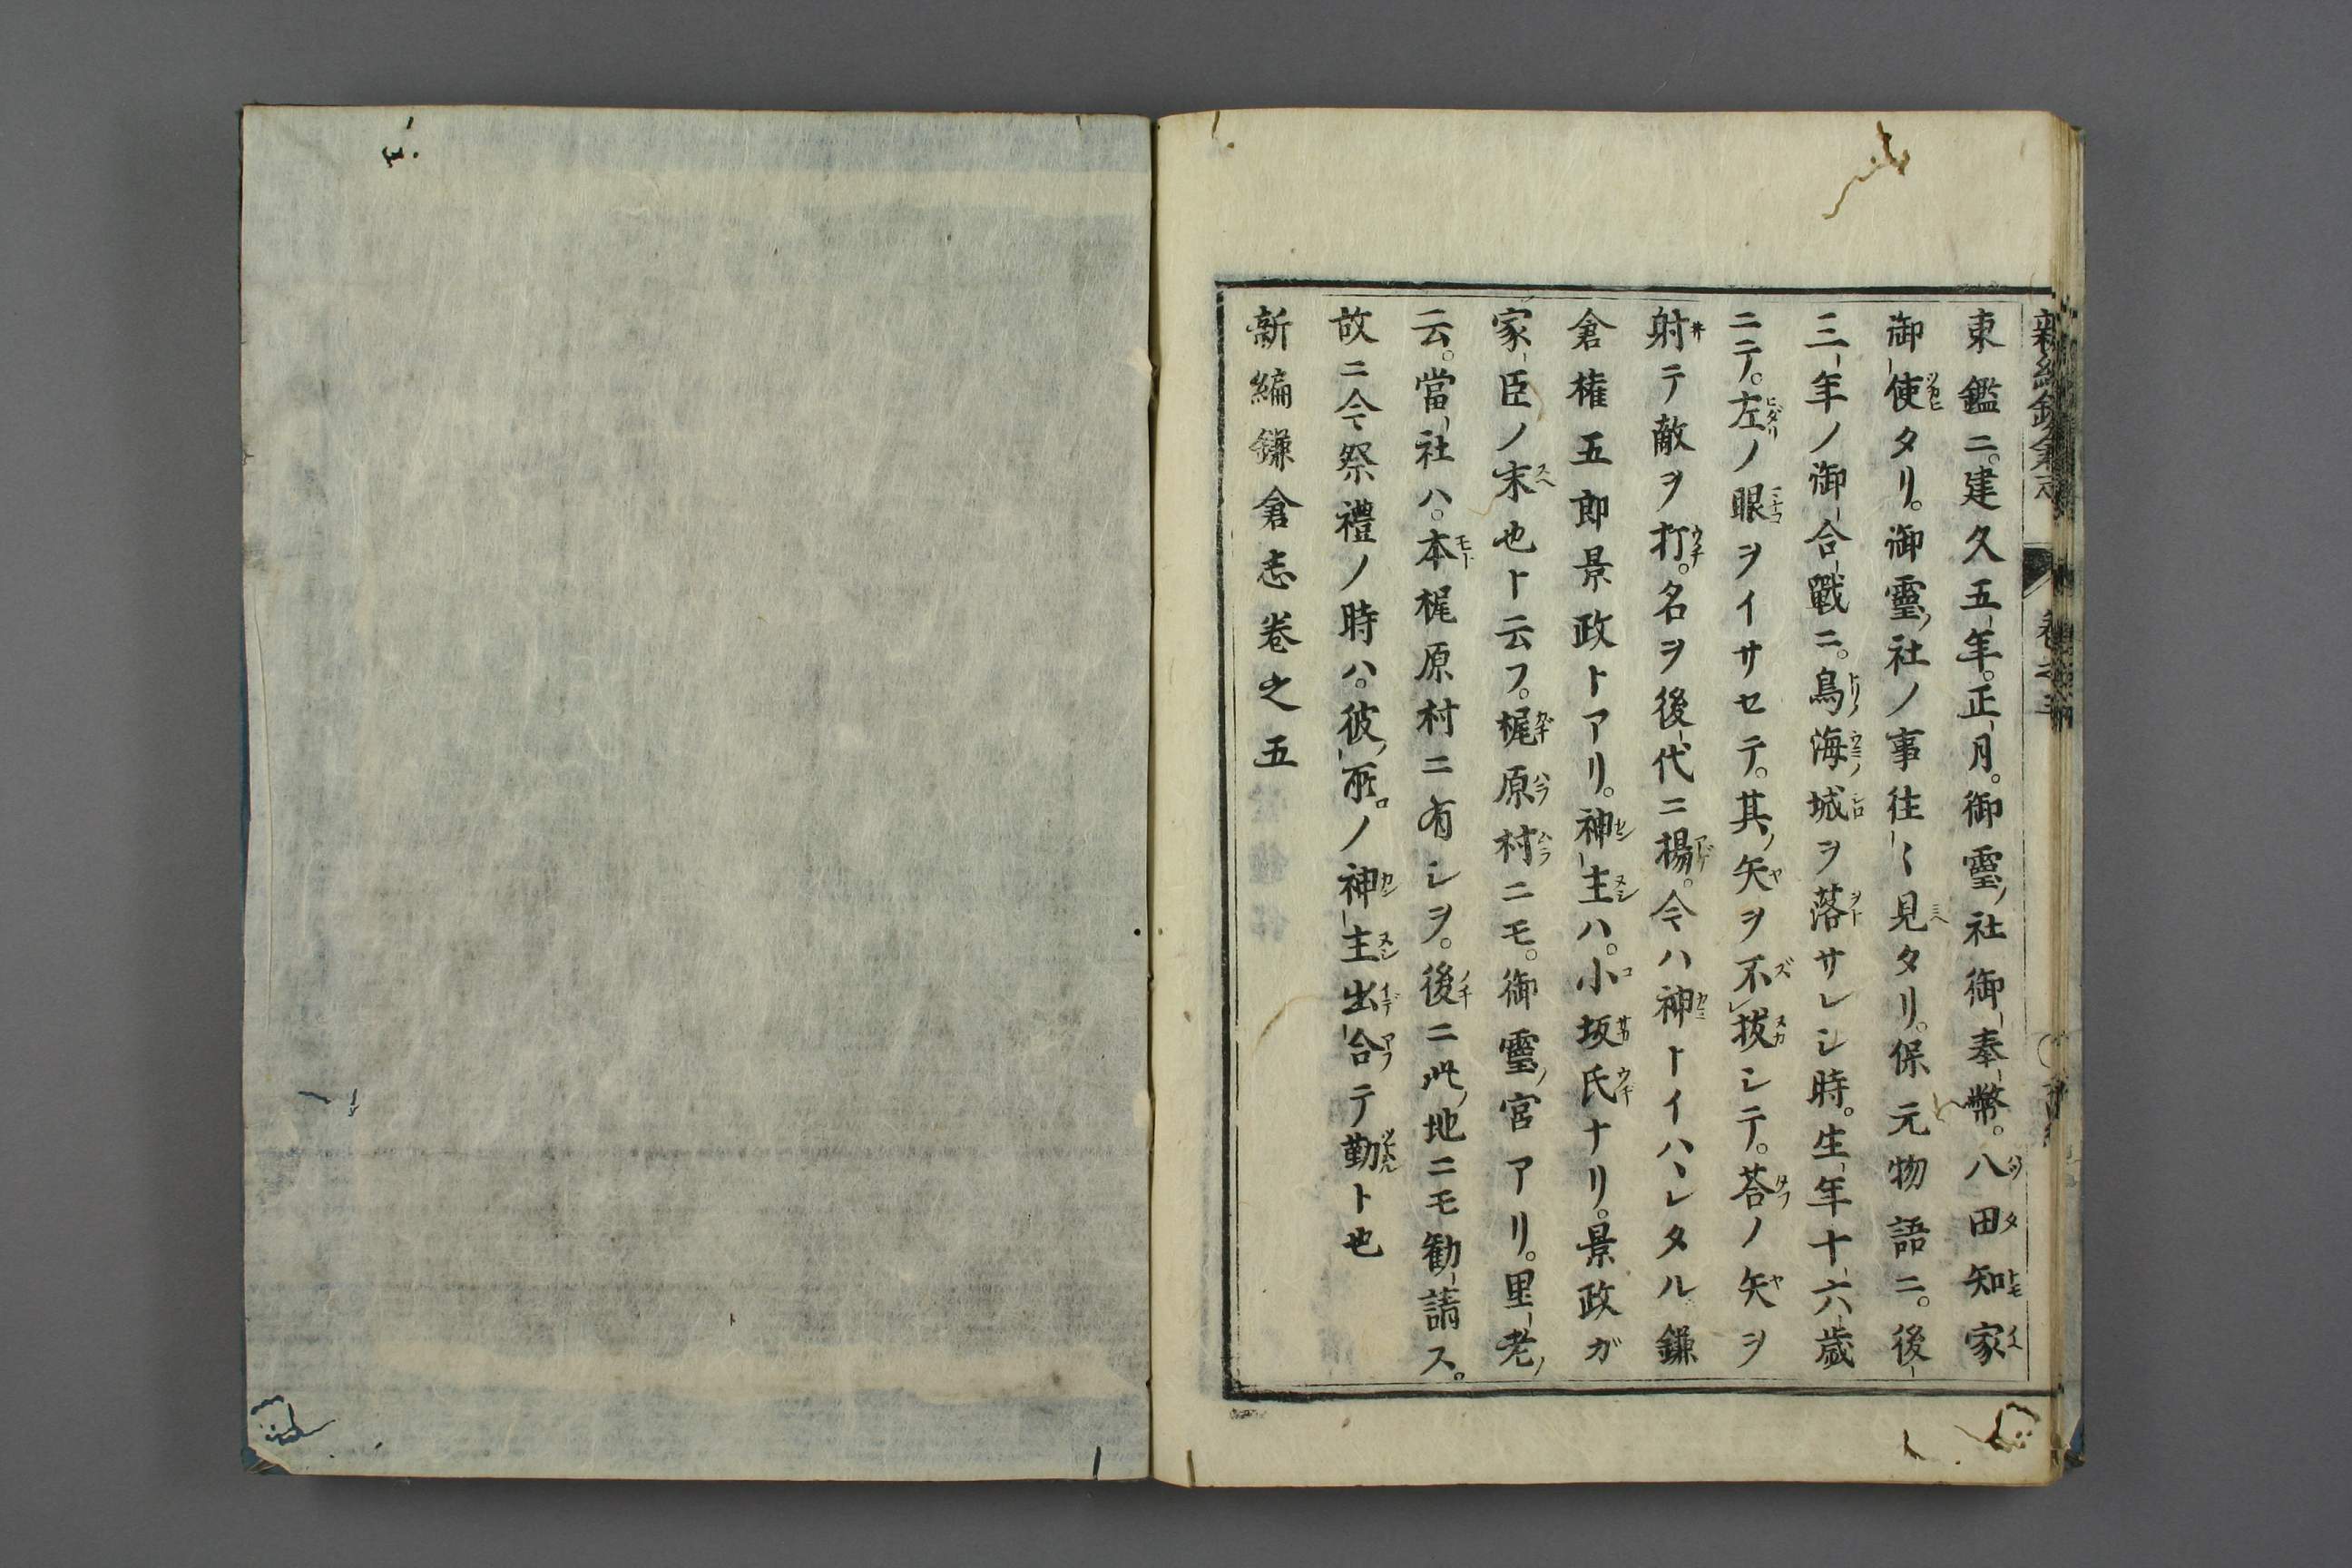 東鑑ニ。建久五年。正月。御靈ノ社御奉幣。八田知家
御使タリ。御靈ノ社ノ事往〻見タリ。保元物語ニ。後
三年ノ御合戰ニ。鳥海城ヲ落サレシ時。生年十六歳
ニテ。左ノ眼ヲイサセテ。其ノ矢ヲ不拔シテ。荅ノ矢ヲ
射テ敵ヲ打。名ヲ後代ニ揚。今ハ神トイハヽレタル鎌
倉権五郎景政トアリ。神主ハ。小坂氏ナリ。景政ガ
家臣ノ末也ト云フ。梶原村ニモ。御靈ノ宮アリ。里老ノ
云。當社ハ。本梶原村ニ有シヲ。後ニ此ノ地ニモ勧請ス。
故ニ今祭禮ノ時ハ。彼ノ所。ノ神主出合テ勤ト也
新編鎌倉志卷之五